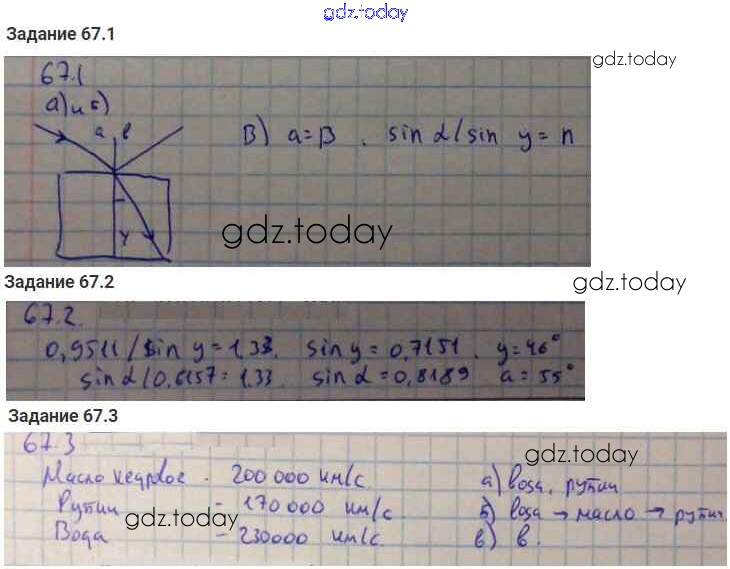 gdz.today
Задание 67.1
gdz.today
67.1
а) и б)
a b
В) a=β . sin α/sin y = n
y
gdz.today
Задание 67.2
gdz.today
67.2.
0,9511/sin y = 1,33. sin y = 0,7151. y=46°
sin α/0,6157=1,33. sin α = 0,8189 a = 55°
Задание 67.3
67.3
gdz.today
Масло кедровое - 200 000 км/с. а) вода, рутил
Рутил - 170000 км/с б) вода → масло → рутил
gdz.today
Вода - 230000 км/с. в) в.